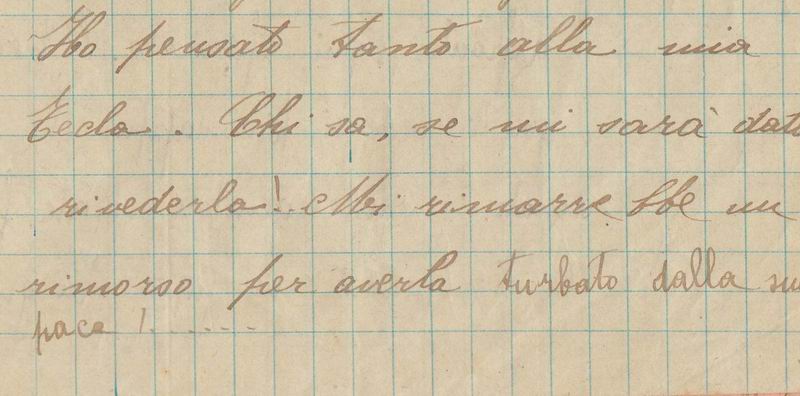 Ho pensato tanto alla mia
Tecla. Chi sa, se mi sarà dato
rivederla!.. Mi rimarrebbe un
rimorso per averla turbato dalla sua
pace!.......